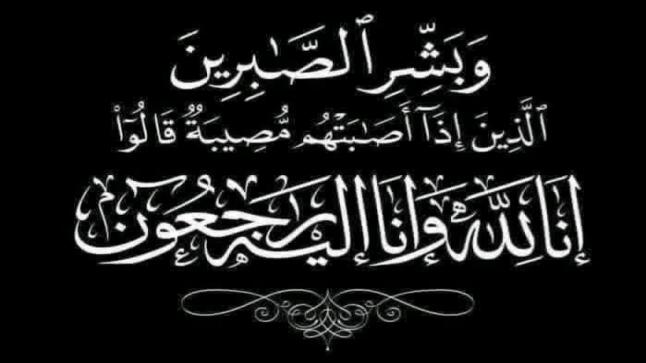 وَبَشِّرِ ٱلصَّٰبِرِينَ
ٱلَّذِينَ إِذَآ أَصَٰبَتْهُم مُّصِيبَةٌۭ قَالُوٓا۟
إنا لله وإنا إليه راجعون